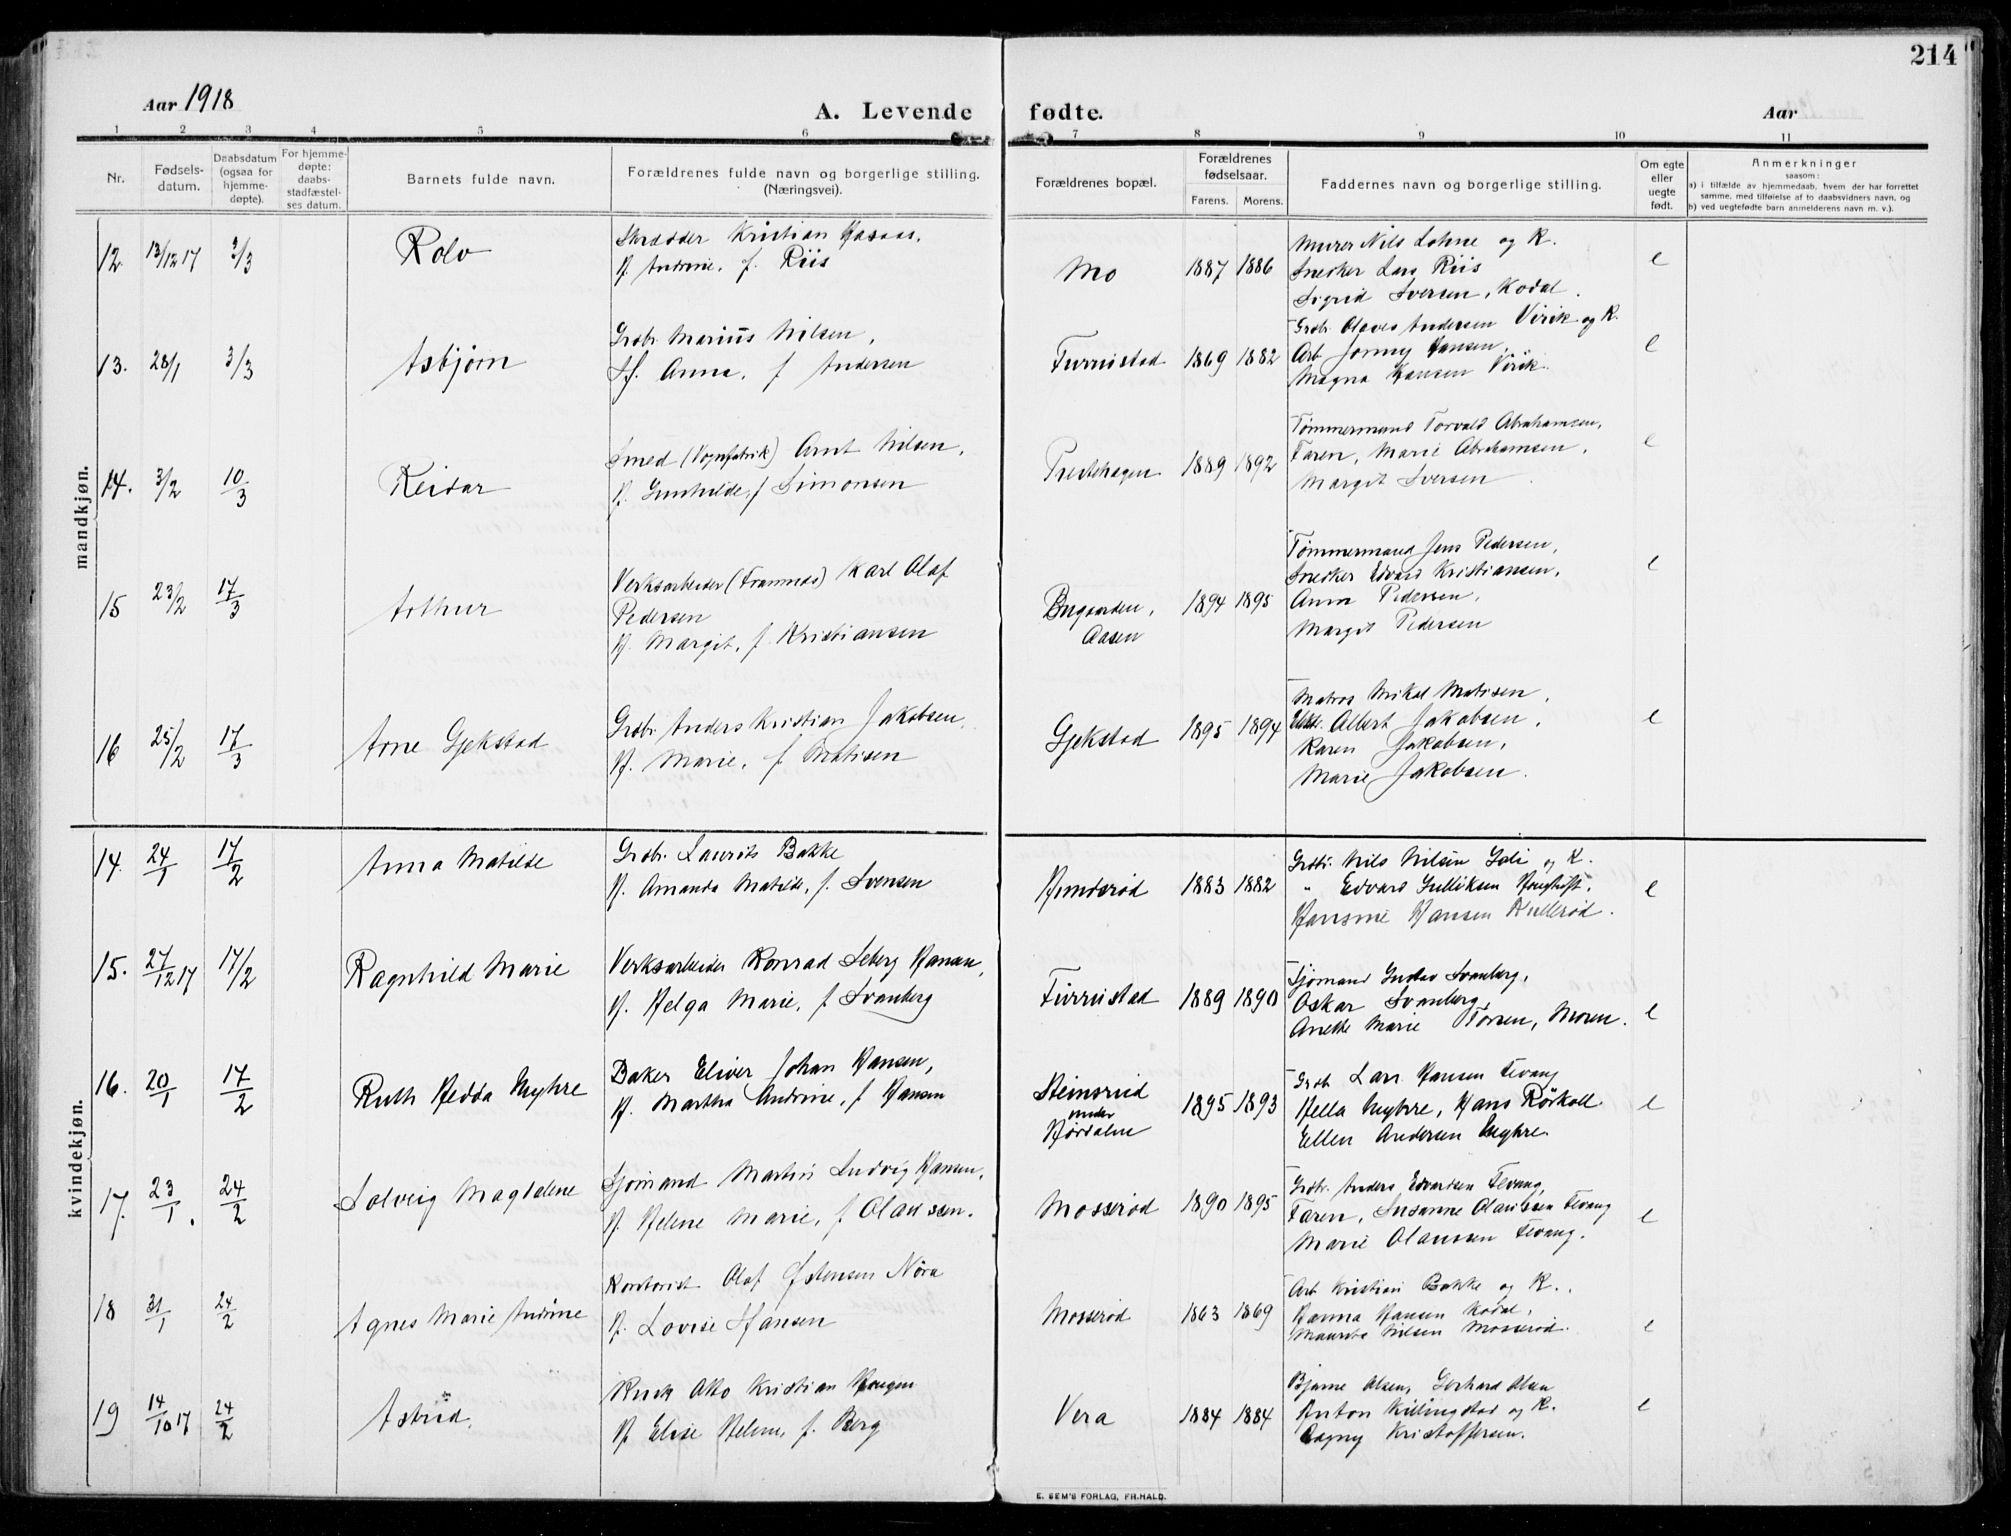 214
Aar 1918
A. Levende fødte.
Aar
1 2 3 4 5 6 7 8 9 10 11
Nr.
Fødsels-
datum.
Daabsdatum
(ogsaa for
hjemme-
døpte).
For hjemme-
døpte:
daabs-
stadfæstel-
ses datum.
Barnets fulde navn.
Forældrenes fulde navn og borgerlige stilling.
(Næringsvei).
Forældrenes bopæl.
Forældrenes
fødselsaar.
Farens. Morens.
Faddernes navn og borgerlige stilling.
Om egte
eller
uegte
født.
Anmerkninger
saasom:
a) i tilfælde av hjemmedaab, hvem der har forrettet
samme, med tilføielse af to daabsvidners navn, og
b) ved uegtefødte barn anmelderens navn m. v.).
mandkjøn.
12. 13/12 17 3/3 Rolv
Skrædder Kristian
H. Andrine, f. Riis
Mo 1887 1886
Murer Nils Lohne og K.
Snekker Lars Riis
Sigrid Iversen, Kodal.
e
13. 28/1 3/3 Asbjørn
Grdbr. Marius Nilsen,
H. Anna, f. Andersen
Furrustad 1869 1882
Grdbr. Olaves Andersen Virik og K.
Arb. Jonny Hansen,
Magna Hansen Virik.
e
14. 3/2 10/3 Reidar
Smed (Vognfabrik) Arnt Nilsen,
H. Gunhilde, f. Simonsen
Prestehagen 1889 1892
Tømmermand Torvald Abrahamsen,
Faren, Marie Abrahamsen,
Margit Iversen.
e
15 23/2 17/3 Arthur
Verksarbeider (Framnæs) Karl Olaf
Pedersen
H. Margit, f. Kristiansen
Bugaarden,
Aasen
1894 1895
Tømmermand Jens Pedersen,
Snekker Edvard Kristiansen,
Anna Pedersen,
Margit Pedersen
e
16 25/2 17/3 Arne Gjekstad
Grdbr. Anders Kristian Jakobsen,
H. Marie, f. Matisen
Gjekstad 1895 1894
Matros Mikal Matisen,
Albert Jakobsen,
Karen Jakobsen,
Marie Jakobsen.
e
kvindekjøn.
14. 24/1 17/2 Anna Matilde
Grdbr. Laurits Bakke
H. Amanda Matilde, f. Svensen
Hunderød 1883 1882
Grdbr. Nils Nilsen Goli og K.
" Edvard Gulliksen
Hansine Hansen Kullerød.
e
15. 27/12 17 17/2 Ragnhild Marie
Verksarbeider Konrad Seberg Hansen,
H. Helga Marie, f. Svanberg
Furrustad 1889 1890
Sjømand Gustav Svanberg,
Oskar Svanberg,
Anette Marie Moren.
e
16. 20/1 17/2 Ruth Hedda Nyhre
Baker Eliver Johan Hansen,
H. Martha Andrine, f. Hansen
Steinsrud
under
Hørdalen
1895 1893
Grdb. Lars Hansen Fevang
Hella Myhre, Hans Rørkoll
Ellen Andersen Myhre.
e
17. 23/1. 24/2 Solveig Magdalene
Sjømand Martin Ludvig Hansen,
H. Helene Marie, f. Olaussen.
Mosserød 1890 1895
Grdbr. Anders Edvardsen Fevang,
Faren, Susanne Olaussen Fevang
Marie Olaussen Fevang.
e
18 31/1 24/2 Agnes Marie Andrine
Kontorist Olaf Østensen Nøra
H. Lovise Hansen
Mosserød 1863 1869
Arb. Kristian Bakke og K.,
Hanna Hansen Kodal,
Nilsen Mosserød.
e
19 14/10 17 24/2 Astrid.
Otto Kristian Haugen
H. Elise Helene, f. Berg
Vera 1884 1884
Bjarne Olsen, Gerhard Olsen
Anton Killingstad og K.
Dagny Kristoffersen.
e
E. SEM'S FORLAG, FR.HALD.